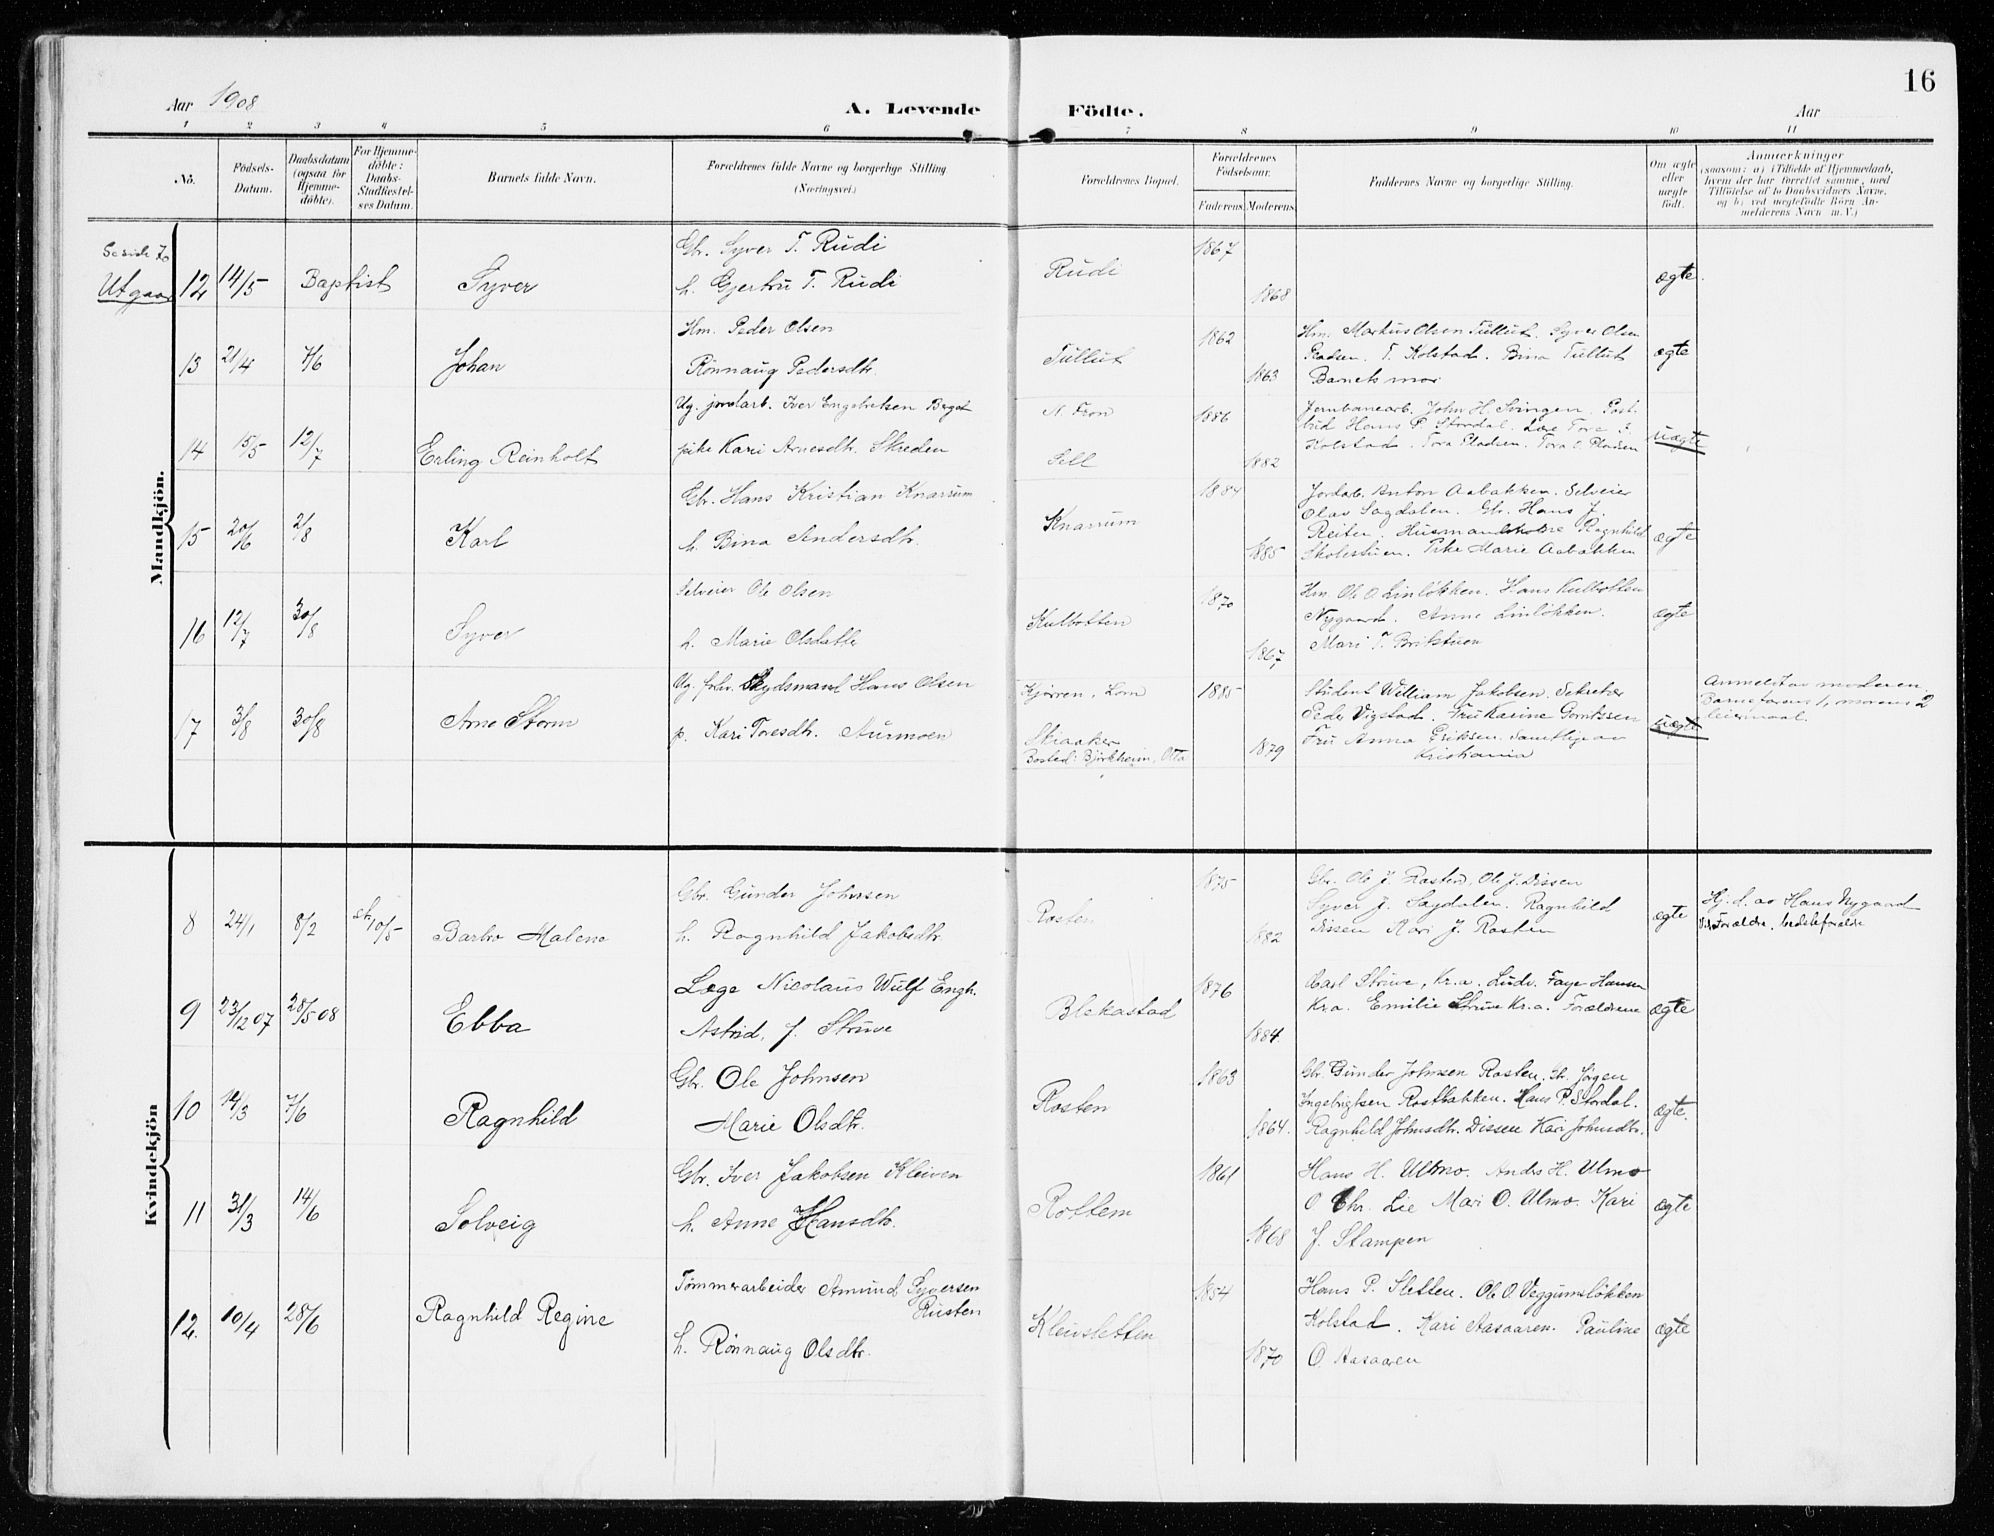 16
Aar 1908
A. Levende Födte.
Aar
1 2 3 4 5 6 7 8 9 10 11
No.
Födsels-Datum.
Daabsdatum (ogsaa for Hjemme-döbte).
For Hjemme-döbte: Daabs-Stadfæstel-ses Datum.
Barnets fulde Navn.
Forældrenes fulde Navne og borgerlige Stilling
(Næringsvei.)
Forældrenes Bopæl.
Forældrenes Födselsaar.
Faderens. Moderens.
Faddernes Navne og borgerlige Stilling.
Om ægte eller uægte födt.
Anmærkninger
(saasom: a) i Tilfælde af Hjemmedaab,
hvem der har forrettet samme, med
Tilföielse af to Daabsvidners Navne,
og b) ved uægtefödte Börn An-
melderens Navn m. V.)
Mandkjön.
Se side 70
Utgaar
12 14/5 Baptist Syver
Gbr. Syver T. Rudi
h. Gjertru T. Rudi
Rudi 1867 1868 ægte.
13 21/4 7/6 Johan
Hm. Peder Olsen
Rönnaug Pedersdtr.
Tullut 1862 1863
Hm. Markus Olsen Tullut. Syver Olsen
Pladsen. T. Kolstad. Bina Tullut
Barnets mor
ægte
14 15/5 12/7 Erling Reinholt
Ug. jordarb. Iver Engebretsen Berget
pike Kari Arnesdtr. Skreden
N. Fron
Sell
1886 1882
Jernbanearb. John H. Svingen. Post-
bud Hans P. Stordal. Tora
Kolstad. Tora Pladsen. Tora Pladsen
uægte
15 20/6 2/8 Karl
Gbr. Hans Kristian Knarrum
h. Bina Andersdtr.
Knarrum 1884 1885
Jordarb. Anton Aabakken. Selveier
Olav Sagdalen. Gbr. Hans J.
Reiten. Husmand Ragnhild
Skolestuen. Pike Marie Aabakken
ægte
16 12/7 30/8 Syver
Selveier Ole Olsen
h. Marie Olsdatter
Kulbotten 1870 1867
Hm. Ole O. Linløkken. Hans Kulbotten
Nygaard. Anne Linløkken.
Mari T. Brikstuen
ægte
17 3/8 30/8 Arne Storm
Ug. forhv. Skydsmand Hans Olsen
p. Kari Toresdtr. Aurmoen
Kjørren, Lom
Skiaaker
Bosted: Björkheim, Otta
1885 1879
Student William Jakobsen. Sekretær
Peder Vigstad. Fru Karine
Fru Anna Eriksen. Samtlige av
Kristiania
uægte
Anmeldt av moderen.
Barnefarens 1, morens 2
leiermaal.
Kvindekjön
8 24/1 8/2 st. 10/5 Barbro Malene
Gbr. Gunder Johnsen
h. Ragnhild Jakobsdtr.
Rosten 1875 1882
Gbr. Ole J. Rosten, Ole J. Dissen
Syver J. Sagdalen. Ragnhild
Dissen Kari J. Rosten
ægte
Hj. d. av Hans Nygaard
Vidn. Forældre, bedsteforældre
9 23/12 07 28/5 08 Ebba
Læge Nicolaus Wulf Engh.
Astrid, f. Struve
Blekastad 1876 1884.
Carl Struve, Kr.a. Ludv. Faye Hansen
Kr.a. Emilie Struve Kr.a. Forældrene
ægte
10 14/3 7/6 Ragnhild
Gbr. Ole Johnsen
Marie Olsdtr.
Rosten 1863 1864.
Gbr. Gunder Johnsen Rosten. Jörgen
Ingebrigtsen Rostbakken. Hans P. Stordal.
Ragnhild Johnsdtr. Dissen Kari Johnsdtr.
ægte.
11 31/3 14/6 Solveig
Gbr. Iver Jakobsen Kleiven
h. Anne Hansdtr.
Rottem 1861 1868
Hans H. Ulmo. Andrs H. Ulmo
O Chr. Lie Mari O. Ulmo. Kari
J. Stampen
ægte
12. 10/4 28/6 Ragnhild Regine
Tømmerarbeider Amund Syversen
Rusten
h. Rønnaug Olsdtr.
Kleivsletten 1854 1870
Hans P. Sletten. Ole O. Veggumsløkken
Kolstad. Kari Aasaaren. Pauline
O. Aasaaren
ægte